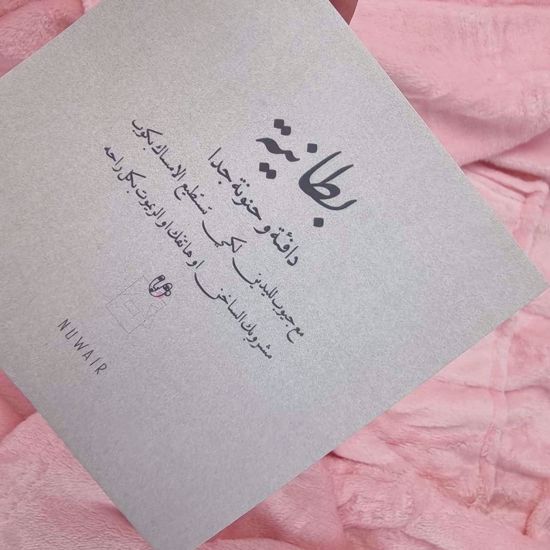 بطانية
دافئة و حنونة جدا
مع جيوب لليدين لكي تستطيع الامساك بكوب
مشروبك الساخن او هاتفك او الريموت بكل راحه
NUWAIR